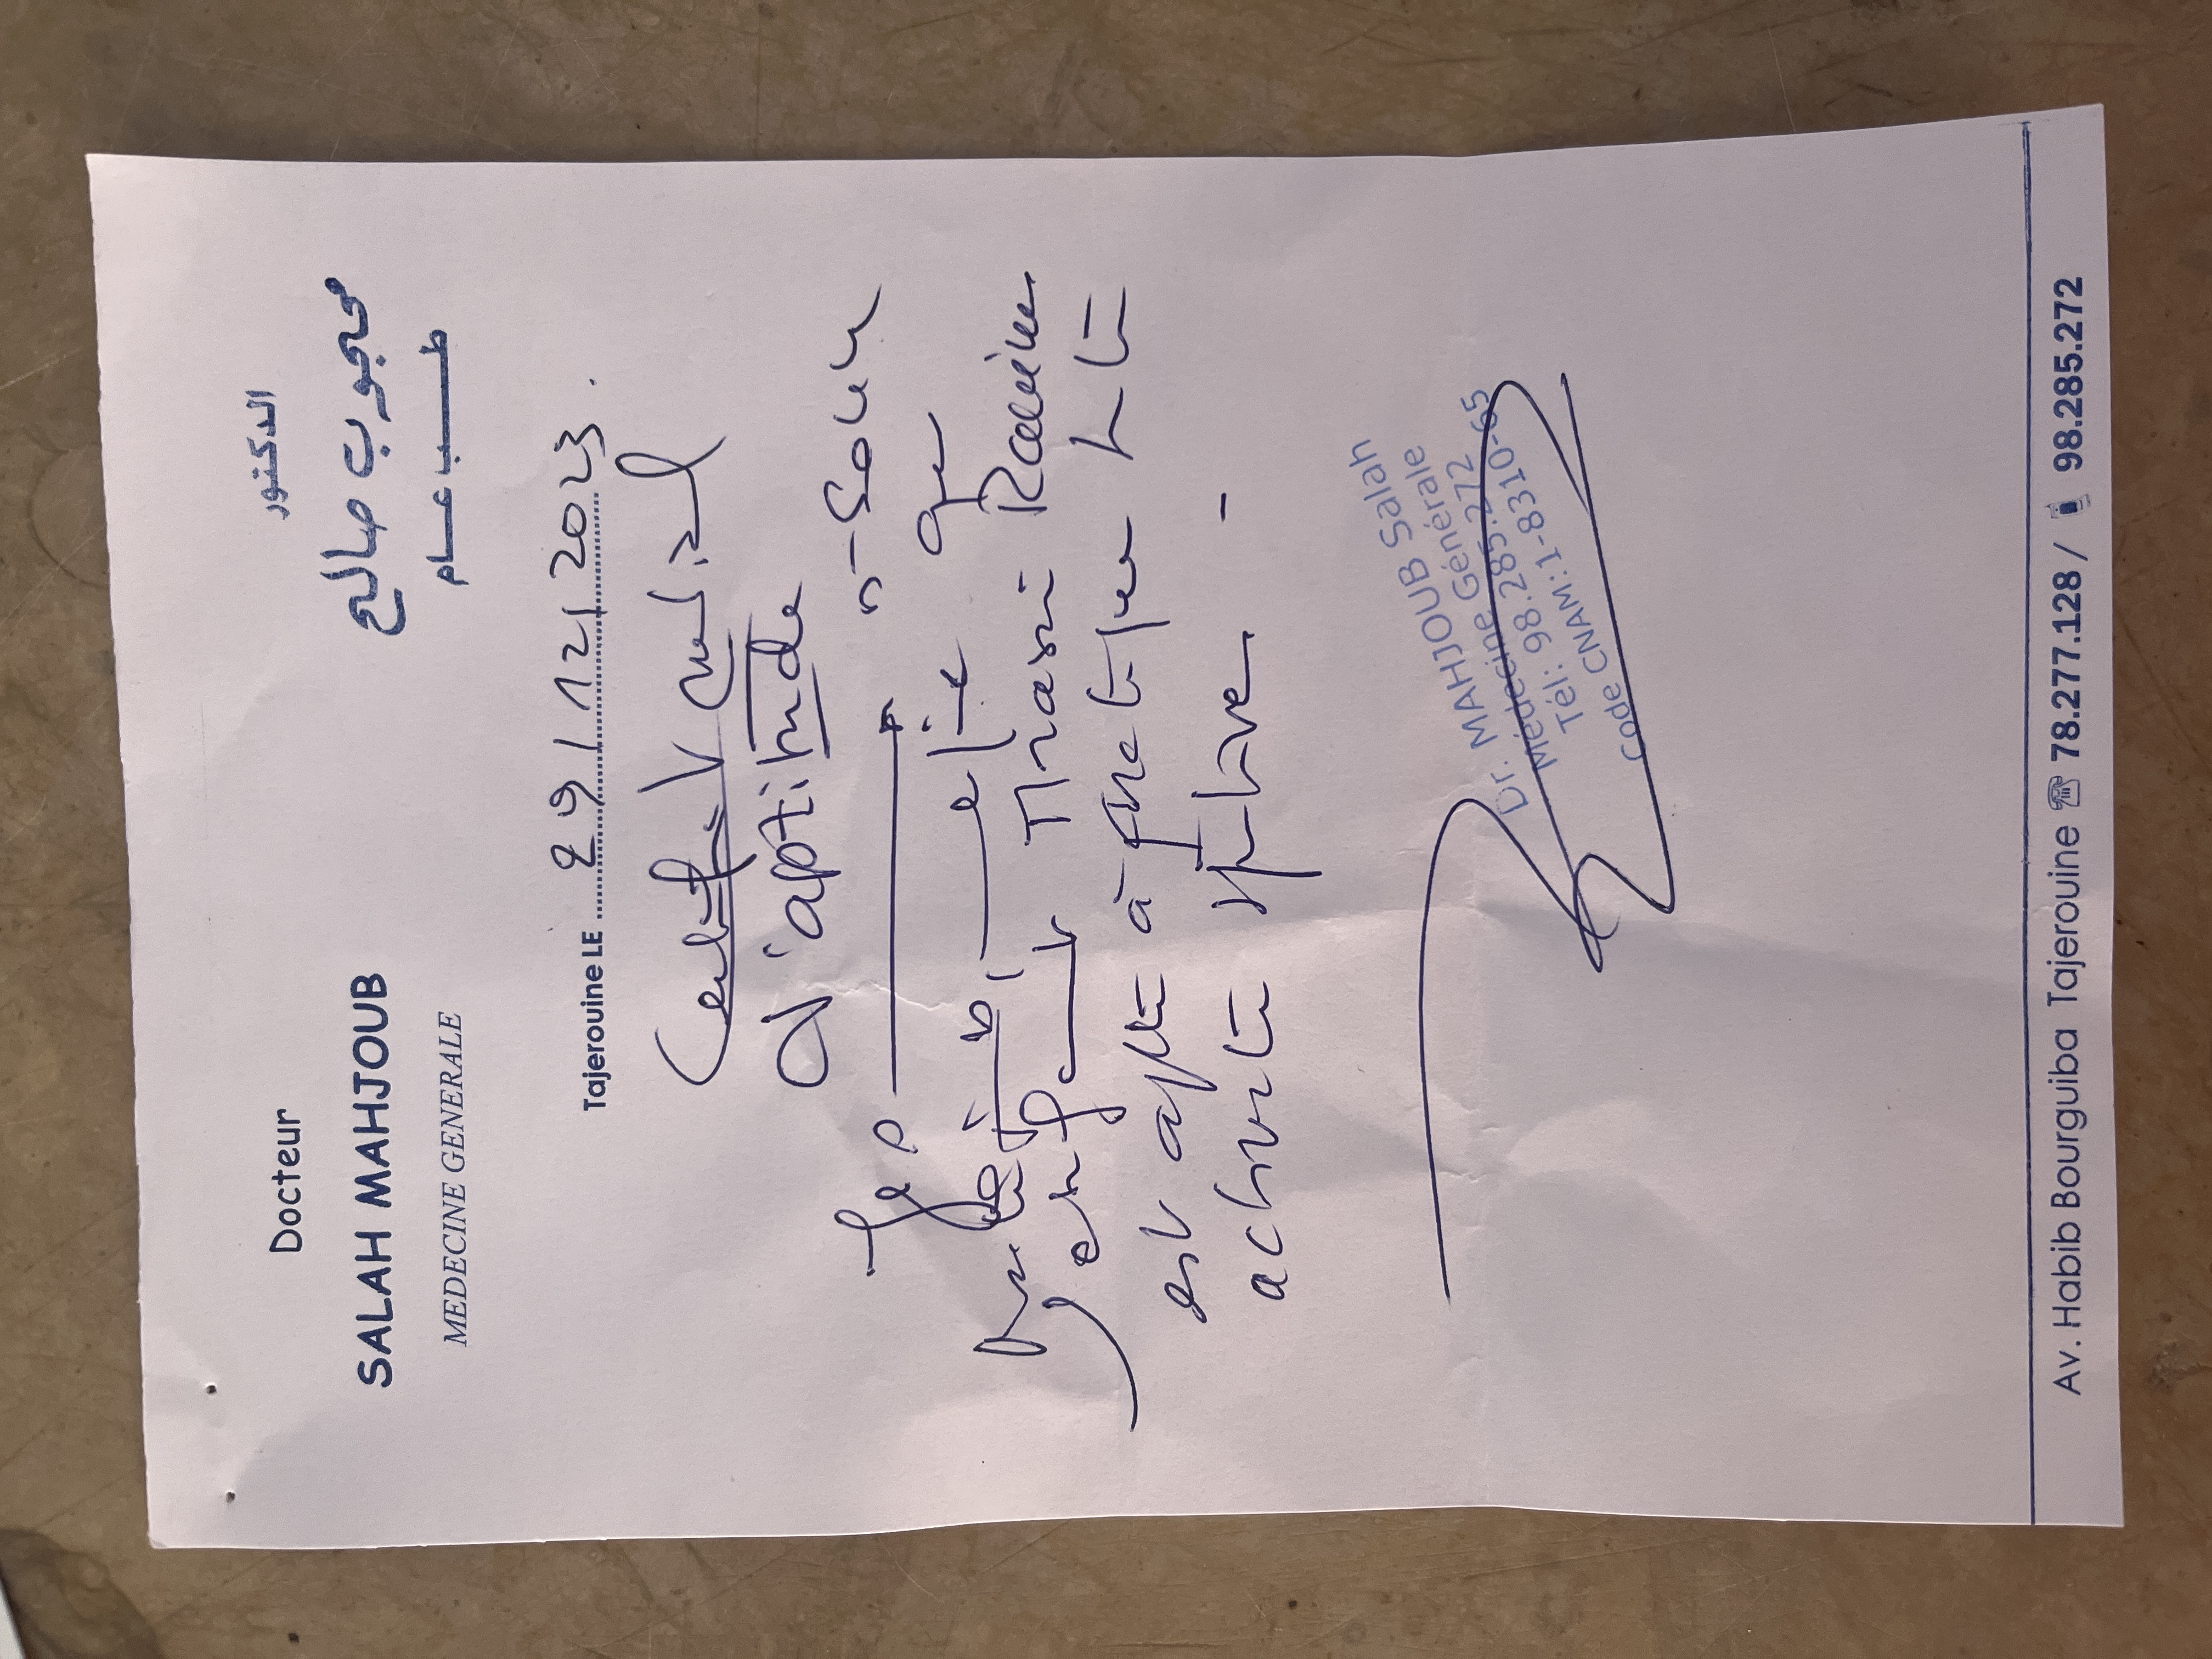 Docteur
SALAH MAHJOUB
MEDECINE GENERALE
الدكتور
محجوب صالح
طب عام
Tajerouine LE 29/12/2023.
Certificat médical
d'aptitude
Je soussigné
certifie que
l'enfant Thabti
est apte à pratiquer
activité sportive -
Dr. MAHJOUB Salah
Médecine Générale
Tél: 98.285.272
Code CNAM:1-8310-65
Av. Habib Bourguiba Tajerouine ☎ 78.277.128 / 98.285.272